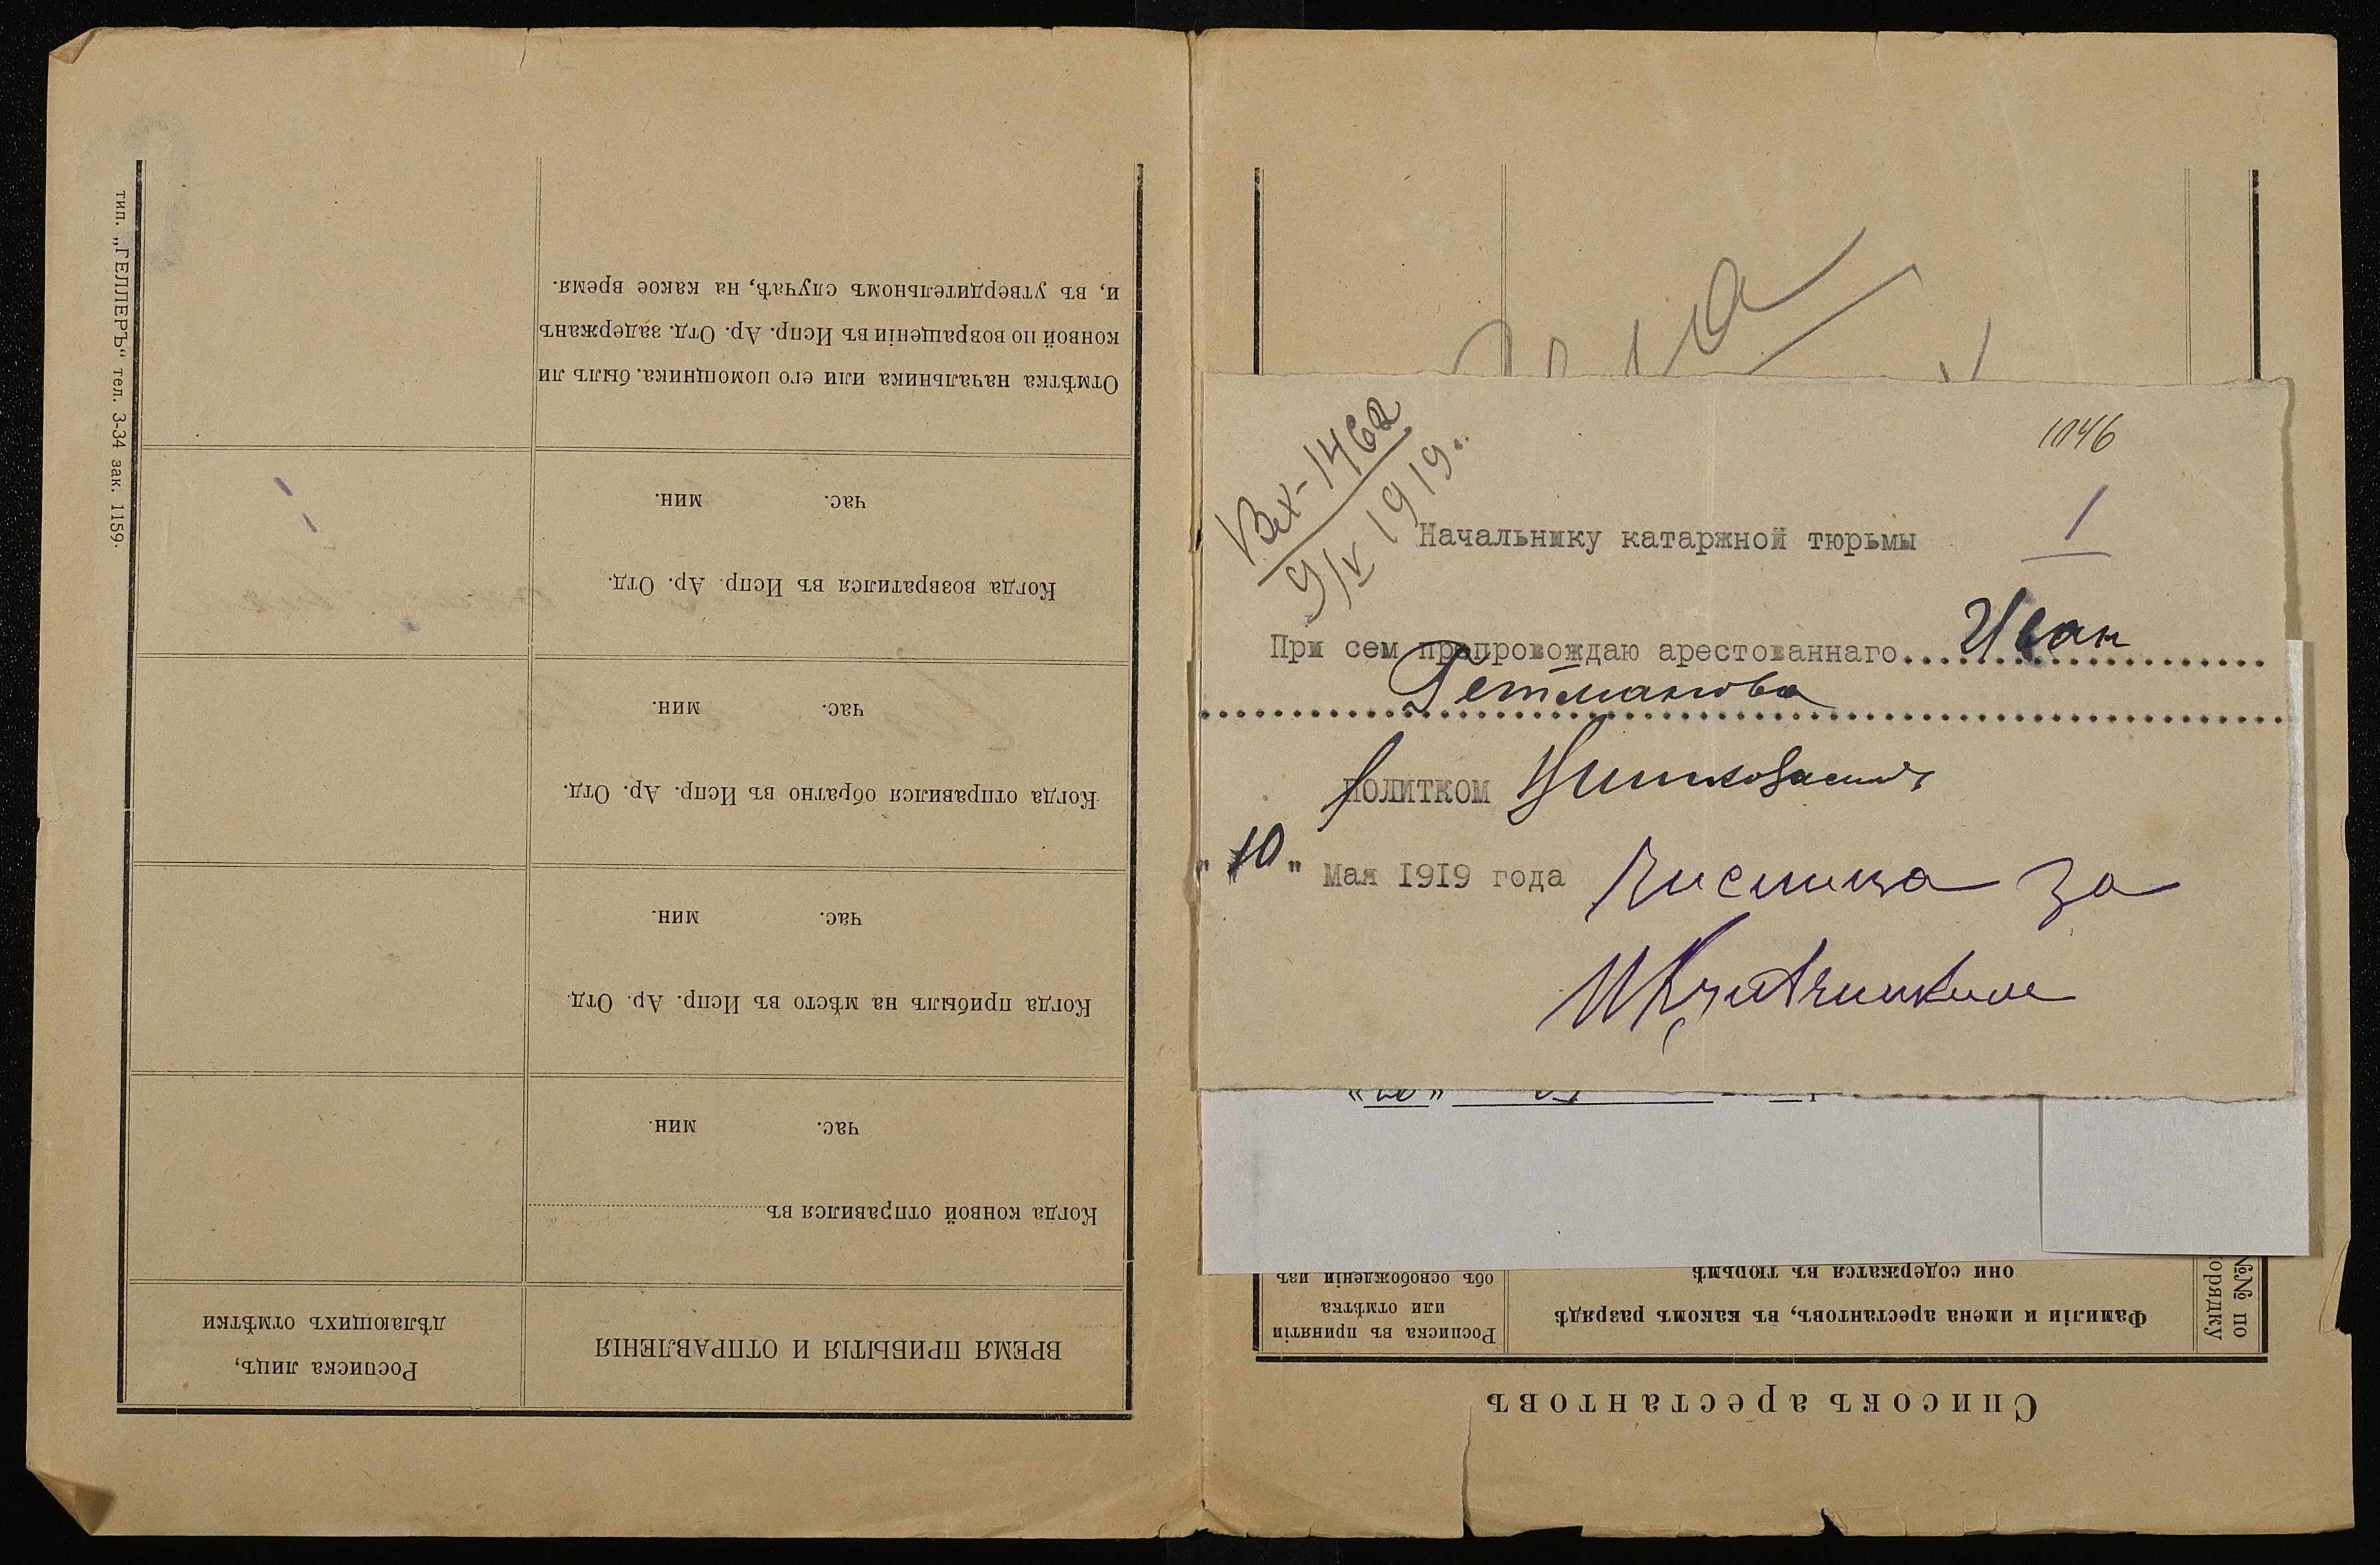 1046
Вх-1462
9/V 1919 г.
1
Начальнику катаржной тюрьмы
При сем препровождаю арестованнаго.... Иван
Гетманова
политком
"10" Мая 1919 года
за
"20"
Списокъ арестантовъ
№№ по
порядку
Фамиліи и имена арестантовъ, въ какомъ разрядѣ
они содержатся въ тюрьмѣ
Росписка въ принятіи
или отмѣтка
объ освобожденіи изъ
ВРЕМЯ ПРИБЫТІЯ И ОТПРАВЛЕНІЯ
Росписка лицъ,
дѣлающихъ отмѣтки
Когда конвой отправился въ
час. мин.
Когда прибылъ на мѣсто въ Испр. Ар. Отд.
час. мин.
Когда отправился обратно въ Испр. Ар. Отд.
час. мин.
Когда возвратился въ Испр. Ар. Отд.
час. мин.
Отмѣтка начальника или его помощника. былъ ли
конвой по возвращеніи въ Испр. Ар. Отд. задержанъ
и, въ утвердительномъ случаѣ, на какое время.
тип. „ГЕЛЛЕРЪ“ тел. 3-34 зак. 1159.